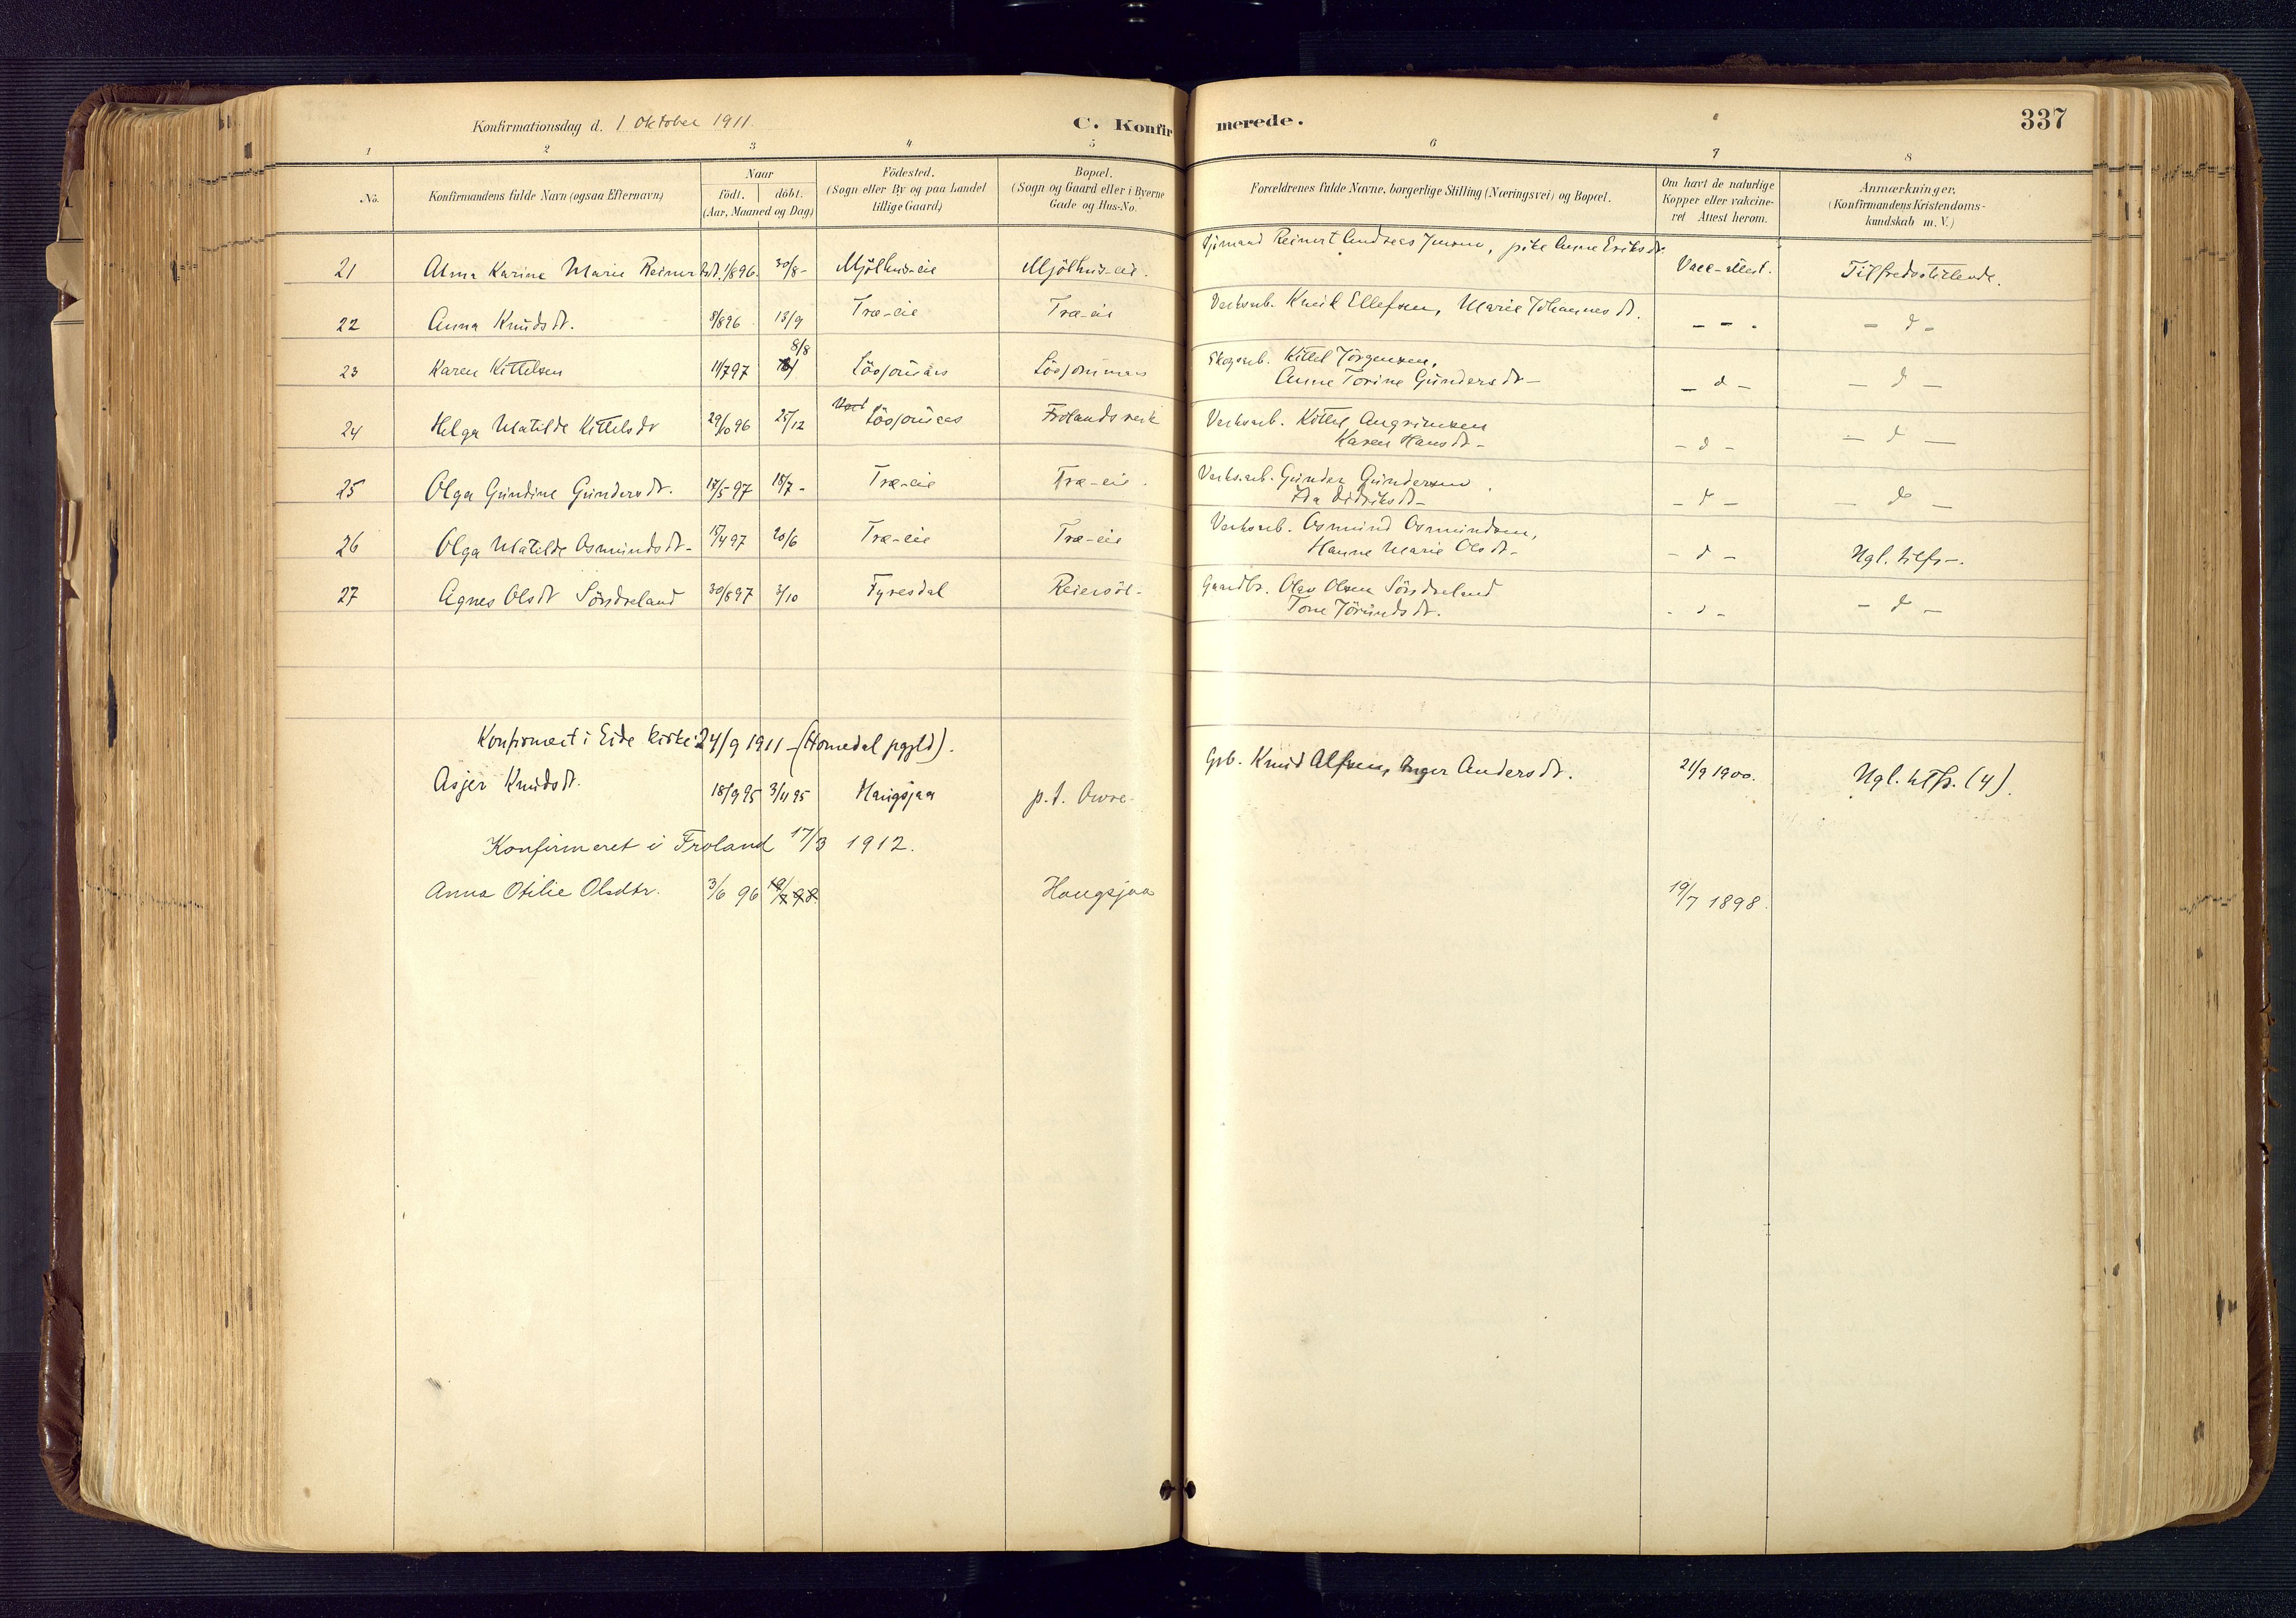 Konfirmationsdag d. 1 Oktober 1911.
C. Konfirmerede.
337
1 2 3 4 5 6 7 8
No. Konfirmandens fulde Navn (ogsaa Efternavn) Naar födt. döbt. (Aar, Maaned og Dag) Födested. (Sogn eller By og paa Landet tillige Gaard) Bopæl. (Sogn og Gaard eller i Byerne Gade og Hus-No. Forældrenes fulde Navne, borgerlige Stilling (Næringsvei) og Bopæl. Om havt de naturlige Kopper eller vakcineret Attest herom. Anmærkninger. (Konfirmandens Kristendomskundskab m. V.)
21 Alma Karine Marie Reinertsdt. 1/896. 30/8- Mjölhus-eie Mjölhus-eie. Reinert Andreas, pike Anne Eriksdt. Vacc-attest. Tilfredsstillende.
22 Anna Knudsdt. 8/896 13/9 Træ-eie Træ-eie Verksarb. Knut Ellefsen, Marie Johannesdt. - - - - d -
23 Karen Kittelsen 11/797 8/8 Skogsarb. Kittel Jörgensen,
Anne Torine Gundersdt- - d - - d -
24 Helga Matilde Kittelsdt 29/10 96 25/12 Frolands verk Verksarb. Kittel Angrimsen
Karen Hansdt- - d - - d -
25 Olga Gundine Gundersdt. 17/5 97 18/7- Træ-eie Træ-eie. Verksarb. Gunder Gundersen.
Ida Didriksdt- - d - - d -
26 Olga Matilde Osmundsdt- 17/497 20/6 Træ-eie Træ-eie Verksarb. Osmund Osmundsen,
Hanne Marie Olsdt- - d - Ngl. tilfr-.
27 Agnes Olsdt Söndreland 30/897 3/10 Fyresdal Reiersöl- Gaardbr. Olav Olsen Söndreland
Tone Jörundsdt. - d - - d -
Konfirmert i Eide kirke 24/9 1911 - (Homedal pgjld).
Asjer Knudsdt. 18/995 3/1195 Haugsjaa p.t. Gsb. Knud Alfsen, Inger Andersdt. 21/9 1900. Ngl. tilfr. (4).
Konfirmeret i Froland 17/3 1912.
Anna Otilie Olsdtr. 3/6 96 19/7 98. Haugsjaa 19/7 1898.